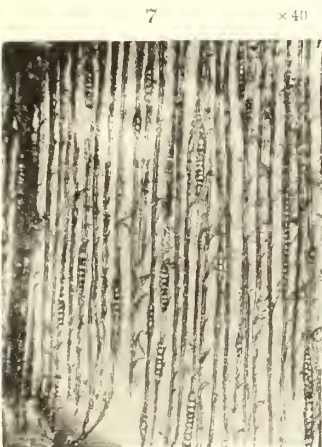 7 ×40